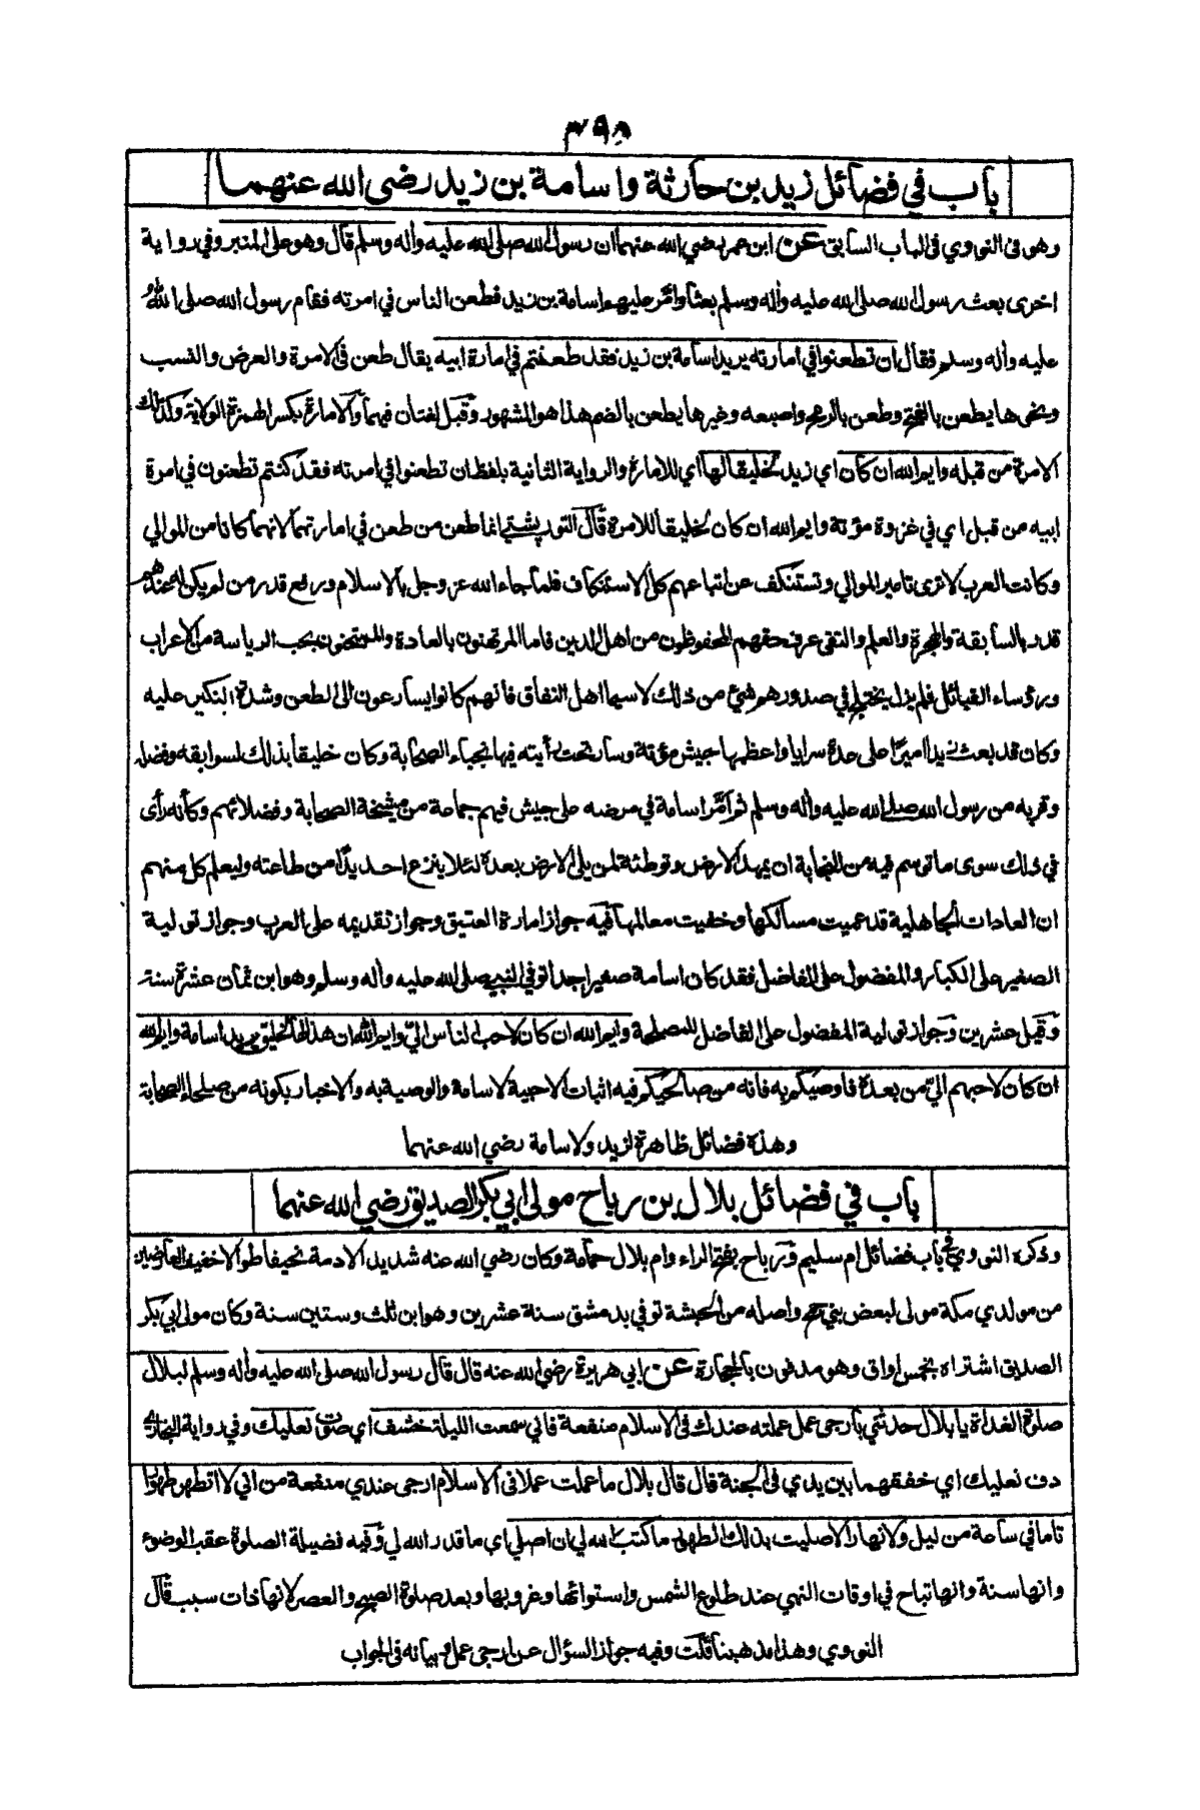 ٣٩٨
باب في فضائل زيد بن حارثة واسامة بن زيد رضي الله عنهما
وهو في النووي في الباب السابق عن ابن عمر رضي الله عنهما ان رسول الله صلى الله عليه وآله وسلم قال وهو على المنبر وفي رواية
اخرى بعث رسول الله صلى الله عليه وآله وسلم بعثا وامّر عليهم اسامة بن زيد فطعن الناس في امرته فقام رسول الله صلى الله
عليه وآله وسلم فقال ان تطعنوا في امارته يريد اسامة بن زيد فقد طعنتم في امارة ابيه يقال طعن في الامرة والعرض والنسب
ونحوها يطعن بالفتح وطعن بالرمح واصبعه وغيرها يطعن بالضم هذا هو المشهور وقيل لغتان فيهما والامارة بكسر الهمزة الولاية وكذلك
الامرة من قبله وايم الله ان كان اي زيد لخليقا لها اي للامارة والرواية الثانية بلفظ ان تطعنوا في امرته فقد كنتم تطعنون في امرة
ابيه من قبل اي في غزوة مؤتة وايم الله ان كان لخليقا للامرة قال التوربشتي انما طعن من طعن في امارتهما لانهما كانا من الموالي
وكانت العرب لا ترى تامير الموالي وتستنكف عن اتباعهم كل الاستنكاف فلما جاء الله عز وجل بالاسلام ورفع قدر من لم يكن له عندهم
قدر بالسابقة والهجرة والعلم والتقى عرف حقهم المحفوظون من اهل الدين فاما المرتهنون بالعادة والممتحنون بحب الرياسة من الاعراب
ورؤساء القبائل فلم يزل يختلج في صدورهم شيء من ذلك لا سيما اهل النفاق فانهم كانوا يسارعون الى الطعن وشدة النكير عليه
وكان قد بعث زيدا اميرا على عدة سرايا واعظمها جيش مؤتة وسار تحت رأيته فيها نجباء الصحابة وكان خليقا بذلك لسوابقه وفضله
وقربه من رسول الله صلى الله عليه وآله وسلم ثم امّر اسامة في مرضه على جيش فيهم جماعة من مشيخة الصحابة وفضلائهم وكأنه رأى
في ذلك سوى ما توسم فيه من النجابة ان يمهد الارض وتوطئة لمن يلي الارض بعده لئلا ينزع احد يدًا من طاعته وليعلم كل منهم
ان العادات الجاهلية قد عميت مسالكها وخفيت معالمها فيه جواز امارة العتيق وجواز تقديمه على العرب وجواز تولية
الصغير على الكبار والمفضول على الفاضل فقد كان اسامة صغيرا جدا توفي النبي صلى الله عليه وآله وسلم وهو ابن ثمان عشرة سنة
وقيل عشرين وجواز تولية المفضول على الفاضل للمصلحة وايم الله ان كان لاحب الناس اليّ وايم الله ان هذا لها لخليق يريد اسامة وايم الله
ان كان لاحبهم اليّ من بعده فاوصيكم به فانه من صالحيكم فيه اثبات الاحبية لاسامة والوصية به والاخبار بكونه من صلحاء الصحابة
وهذه فضائل ظاهرة لزيد ولاسامة رضي الله عنهما
باب في فضائل بلال بن رباح مولى ابي بكر الصديق رضي الله عنهما
وذكره النووي في باب فضائل ام سليم ورباح بفتح الراء وام بلال حمامة وكان رضي الله عنه شديد الادمة نحيفا طوالا خفيف العارضين
من مولدي مكة مولى لبعض بني جمح واصله من الحبشة توفي بدمشق سنة عشرين وهو ابن ثلث وستين سنة وكان مولى ابي بكر
الصديق اشتراه بخمس اواق وهو مدفون بالحجارة عن ابي هريرة رضي الله عنه قال قال رسول الله صلى الله عليه وآله وسلم لبلال
صلوة الغداة يا بلال حدثني بارجى عمل عملته عندك في الاسلام منفعة فاني سمعت الليلة خشف اي صوت نعليك وفي رواية البخاري
دف نعليك اي خفقهما بين يدي في الجنة قال قال بلال ما عملت عملا في الاسلام ارجى عندي منفعة من اني لا اتطهر طهورا
تاما في ساعة من ليل ولا نهار الا صليت بذلك الطهور ما كتب الله لي ان اصلي اي ما قدر الله لي وفيه فضيلة الصلوة عقب الوضوء
وانها سنة وانها تباح في اوقات النهي عند طلوع الشمس واستوائها وغروبها وبعد صلوة الصبح والعصر لانها ذات سبب قال
النووي وهذا مذهبنا قلت وفيه جواز السؤال عن ارجى عمل وبيانه في الجواب